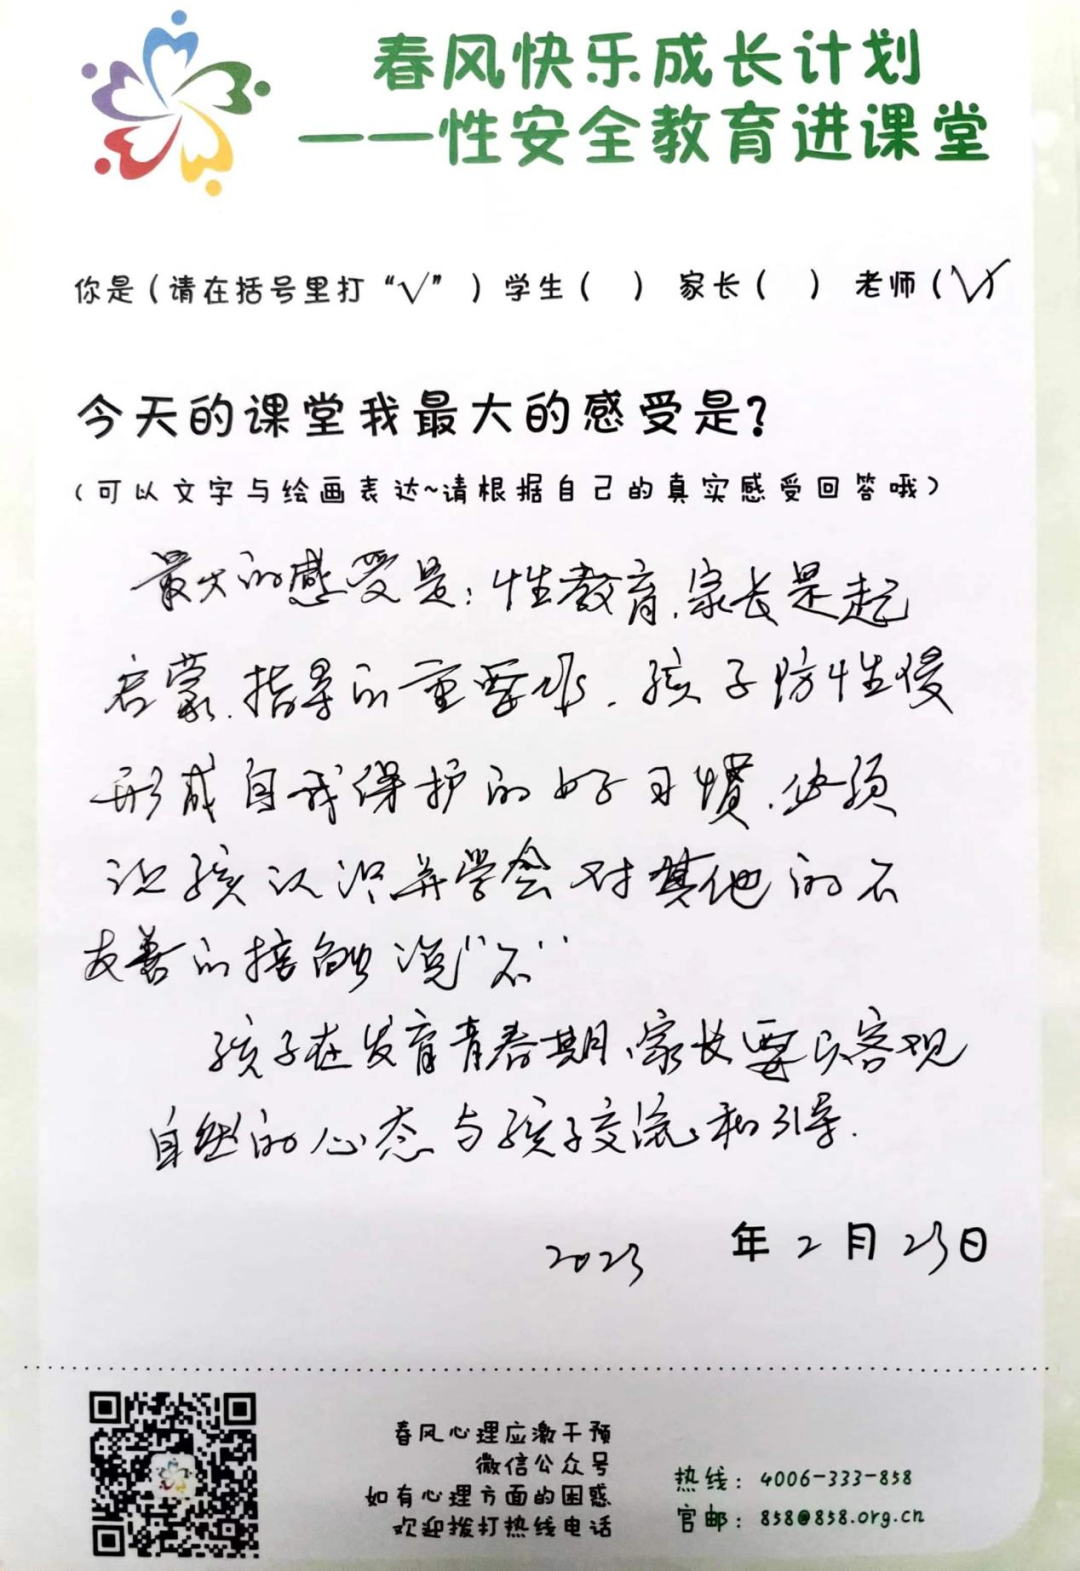 春风快乐成长计划
——性安全教育进课堂
你是(请在括号里打“√”)学生( ) 家长( ) 老师(√)
今天的课堂我最大的感受是?
(可以文字与绘画表达~请根据自己的真实感受回答哦)
最大的感受是:性教育,家长是起
启蒙、指导的重要作,孩子防性侵
形成自我保护的好习惯,必须
让孩认识并学会对其他的不
友善的接触说“不”
孩子在发育青春期,家长要以客观
自然的心态与孩子交流和引导.
2023 年 2 月 23 日
春风心理应激干预
微信公众号
如有心理方面的困惑
欢迎拨打热线电话
热线:4006-333-858
官邮:858@858.org.cn